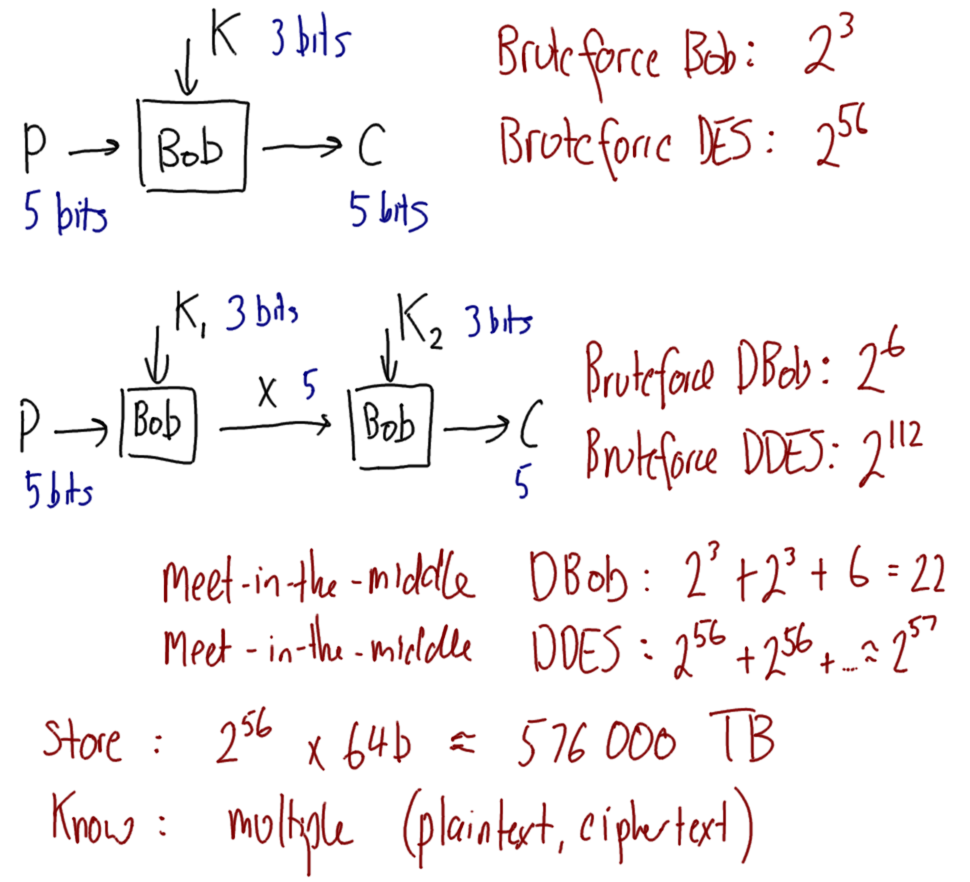 K 3 bits
P → Bob → C
5 bits 5 bits
Bruteforce Bob: 2³
Bruteforce DES: 2⁵⁶
K₁ 3 bits K₂ 3 bits
P → Bob X 5 → Bob → C
5 bits 5
Bruteforce DBob: 2⁶
Bruteforce DDES: 2¹¹²
Meet-in-the-middle DBob: 2³ + 2³ + 6 = 22
Meet-in-the-middle DDES: 2⁵⁶ + 2⁵⁶ + ... ≈ 2⁵⁷
Store: 2⁵⁶ x 64b ≈ 576 000 TB
Know: multiple (plaintext, ciphertext)